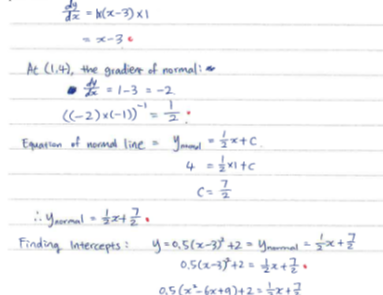 dy/dx = K(x-3)×1
= x-3
At (1,4), the gradient of normal:
dy/dx = 1-3 = -2
((-2)×(-1))⁻¹ = 1/2
Equation of normal line = y_normal = 1/2 x + C
4 = 1/2 ×1 + C
C = 7/2
∴ y_normal = 1/2 x + 7/2
Finding Intercepts: y = 0.5(x-3)² + 2 = y_normal = 1/2 x + 7/2
0.5(x-3)² + 2 = 1/2 x + 7/2
0.5(x² - 6x + 9) + 2 = 1/2 x + 7/2